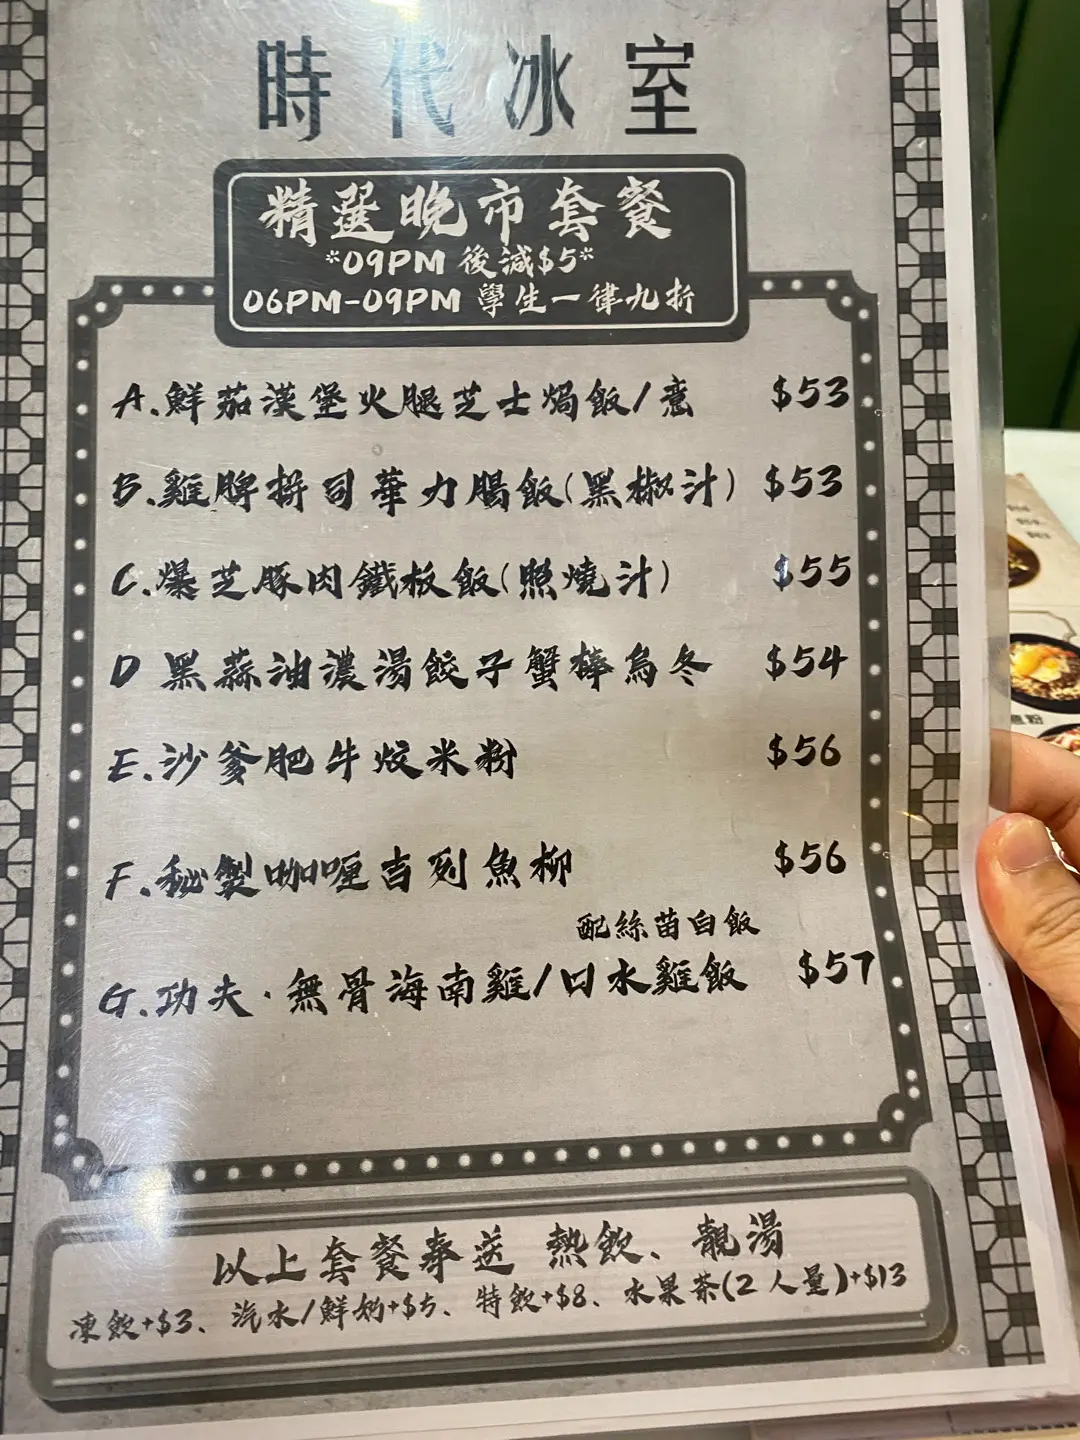 時代冰室
精選晚市套餐
*09PM 後減$5*
06PM-09PM 學生一律九折
A.鮮茄漢堡火腿芝士焗飯/意 $53
B.雞脾拼司華力腸飯(黑椒汁) $53
C.爆芝豚肉鐵板飯(照燒汁) $55
D 黑蒜油濃湯餃子蟹棒烏冬 $54
E.沙爹肥牛炆米粉 $56
F.秘製咖喱吉列魚柳 $56
配絲苗白飯
G.功夫·無骨海南雞/口水雞飯 $57
以上套餐奉送 熱飲、靚湯
凍飲+$3、汽水/鮮奶+$5、特飲+$8、水果茶(2人量)+$13